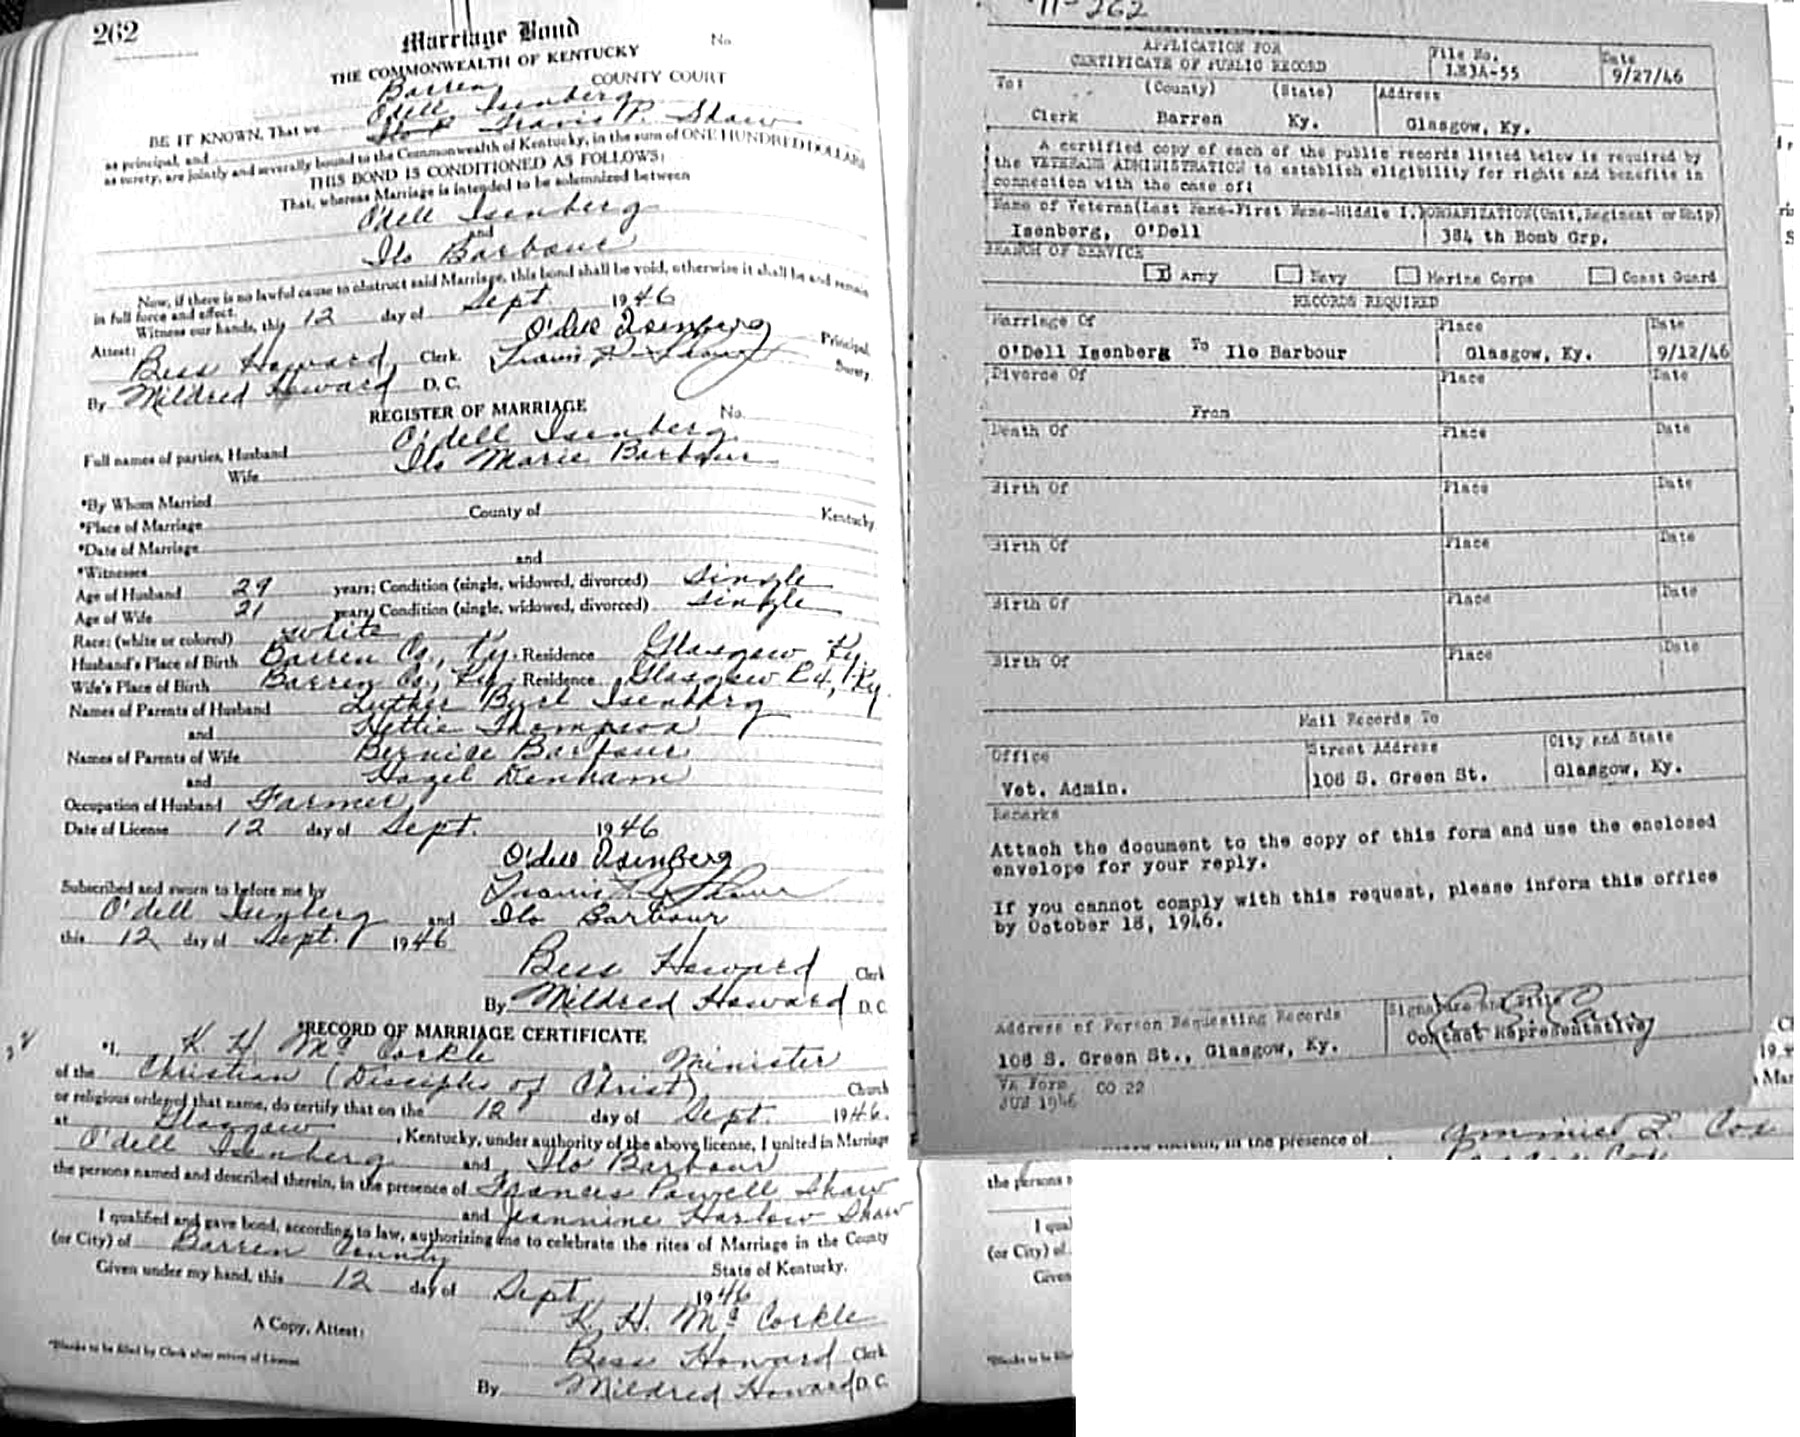 262
Marriage Bond
No.
THE COMMONWEALTH OF KENTUCKY
Barren COUNTY COURT
BE IT KNOWN, That we O'dell Isenberg
as principal, and Travis P. Shaw
as surety, are jointly and severally bound to the Commonwealth of Kentucky, in the sum of ONE HUNDRED DOLLARS
THIS BOND IS CONDITIONED AS FOLLOWS:
That, whereas Marriage is intended to be solemnized between
O'dell Isenberg
and
Ilo Barbour
Now, if there is no lawful cause to obstruct said Marriage, this bond shall be void, otherwise it shall be and remain
in full force and effect.
Witness our hands, this 12 day of Sept. 1946
Attest: O'dell Isenberg Principal.
Bess Howard Clerk. Travis P. Shaw Surety.
By Mildred Howard D. C.
REGISTER OF MARRIAGE No.
Full names of parties, Husband O'dell Isenberg
Wife Ilo Marie Barbour
*By Whom Married
*Place of Marriage County of Kentucky
*Date of Marriage
*Witnesses and
Age of Husband 29 years; Condition (single, widowed, divorced) single
Age of Wife 21 years; Condition (single, widowed, divorced) single
Race: (white or colored) white
Husband's Place of Birth Barren Co., Ky. Residence Glasgow Ky.
Wife's Place of Birth Barren Co., Ky. Residence Glasgow R4, Ky.
Names of Parents of Husband Luther Burl Isenberg
and Hettie Thompson
Names of Parents of Wife Bernice Barbour
and Hazel Denham
Occupation of Husband Farmer
Date of License 12 day of Sept. 1946
O'dell Isenberg
Subscribed and sworn to before me by Travis P. Shaw
O'dell Isenberg and Ilo Barbour
this 12 day of Sept. 1946
Bess Howard Clerk
By Mildred Howard D. C.
*RECORD OF MARRIAGE CERTIFICATE
*I, K. H. McCorkle, Minister
of the Christian (Disciples of Christ) Church
or religious order of that name, do certify that on the 12 day of Sept. 1946.
at Glasgow, Kentucky, under authority of the above license, I united in Marriage
O'dell Isenberg and Ilo Barbour
the persons named and described therein, in the presence of Frances Powell Shaw
and Jeannine Harlow Shaw
I qualified and gave bond, according to law, authorizing me to celebrate the rites of Marriage in the County
(or City) of Barren County State of Kentucky.
Given under my hand, this 12 day of Sept 1946
K. H. McCorkle
A Copy, Attest:
Bess Howard Clerk
*Blanks to be filled by Clerk after return of License
By Mildred Howard D. C.
11-262
APPLICATION FOR
CERTIFICATE OF PUBLIC RECORD
File No.
LE3A-55
Date
9/27/46
To: (County) (State) Address
Clerk Barren Ky. Glasgow, Ky.
A certified copy of each of the public records listed below is required by
the VETERANS ADMINISTRATION to establish eligibility for rights and benefits in
connection with the case of:
Name of Veteran(Last Name-First Name-Middle I.) ORGANIZATION(Unit,Regiment or Ship)
Isenberg, O'Dell 384 th Bomb Grp.
BRANCH OF SERVICE
Army Navy Marine Corps Coast Guard
RECORDS REQUIRED
Marriage Of Place Date
O'Dell Isenberg To Ilo Barbour Glasgow, Ky. 9/12/46
Divorce Of Place Date
From
Death Of Place Date
Birth Of Place Date
Birth Of Place Date
Birth Of Place Date
Birth Of Place Date
Mail Records To
Office Street Address City and State
Vet. Admin. 108 S. Green St. Glasgow, Ky.
Remarks
Attach the document to the copy of this form and use the enclosed
envelope for your reply.
If you cannot comply with this request, please inform this office
by October 18, 1946.
Address of Person Requesting Records Signature and Title
108 S. Green St., Glasgow, Ky. Contact Representative
VA Form CO 22
JUN 1946
in the presence of
Cox
the persons
(or City) of